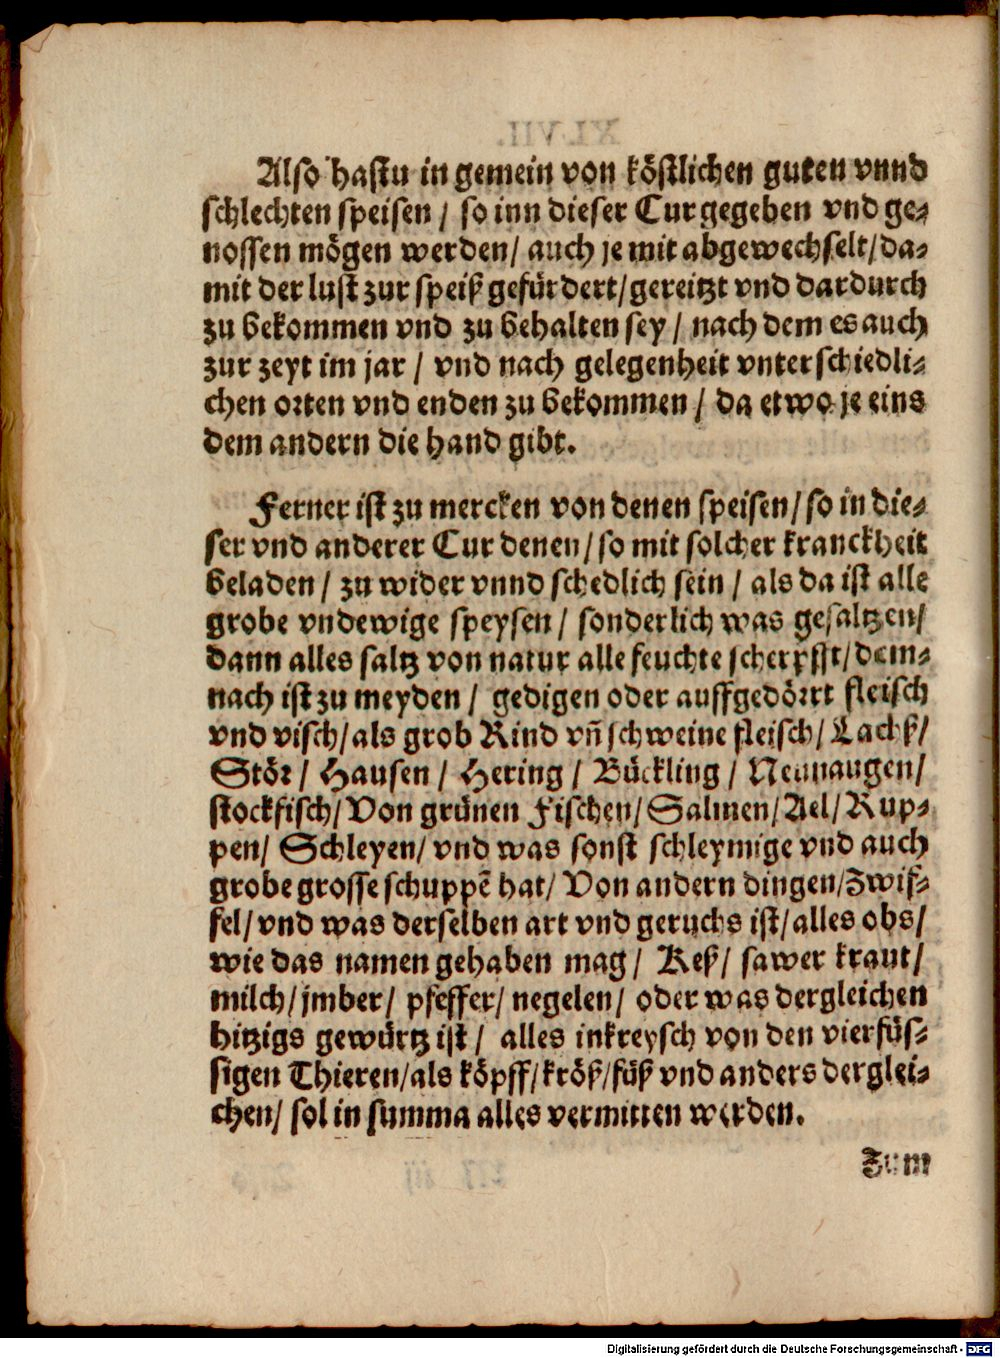 Also hastu in gemein von köstlichen guten vnnd
schlechten speisen / so inn dieser Cur gegeben vnd ge⸗
nossen mögen werden/ auch je mit abgewechselt/ da⸗
mit der lust zur speiß gefürdert/ gereitzt vnd dardurch
zu bekommen vnd zu behalten sey / nach dem es auch
zur zeyt im jar / vnd nach gelegenheit vnterschiedli⸗
chen orten vnd enden zu bekommen / da etwo je eins
dem andern die hand gibt.
Ferner ist zu mercken von denen speisen/ so in die⸗
ser vnd anderer Cur denen/ so mit solcher kranckheit
beladen / zu wider vnnd schedlich sein / als da ist alle
grobe vndewige speysen / sonderlich was gesaltzen/
dann alles saltz von natur alle feuchte scherpfft/ dem⸗
nach ist zu meyden / gedigen oder auffgedörrt fleisch
vnd visch/ als grob Rind vñ schweine fleisch/ Lachß/
Stör / Hausen / Hering / Bückling / Neunaugen/
stockfisch/ Von grünen Fischen/ Salmen/ Ael/ Rup⸗
pen/ Schleyen/ vnd was sonst schleymige vnd auch
grobe grosse schuppẽ hat/ Von andern dingen/ Zwif⸗
fel/ vnd was derselben art vnd geruchs ist/ alles obs/
wie das namen gehaben mag / Keß/ sawer kraut/
milch/ jmber/ pfeffer/ negelen/ oder was dergleichen
hitzigs gewürtz ist / alles inkreysch von den vierfüs⸗
sigen Thieren/ als köpff/ kröß/ füß vnd anders derglei⸗
chen/ sol in summa alles vermitten werden.
Zum
Digitalisierung gefördert durch die Deutsche Forschungsgemeinschaft - DFG